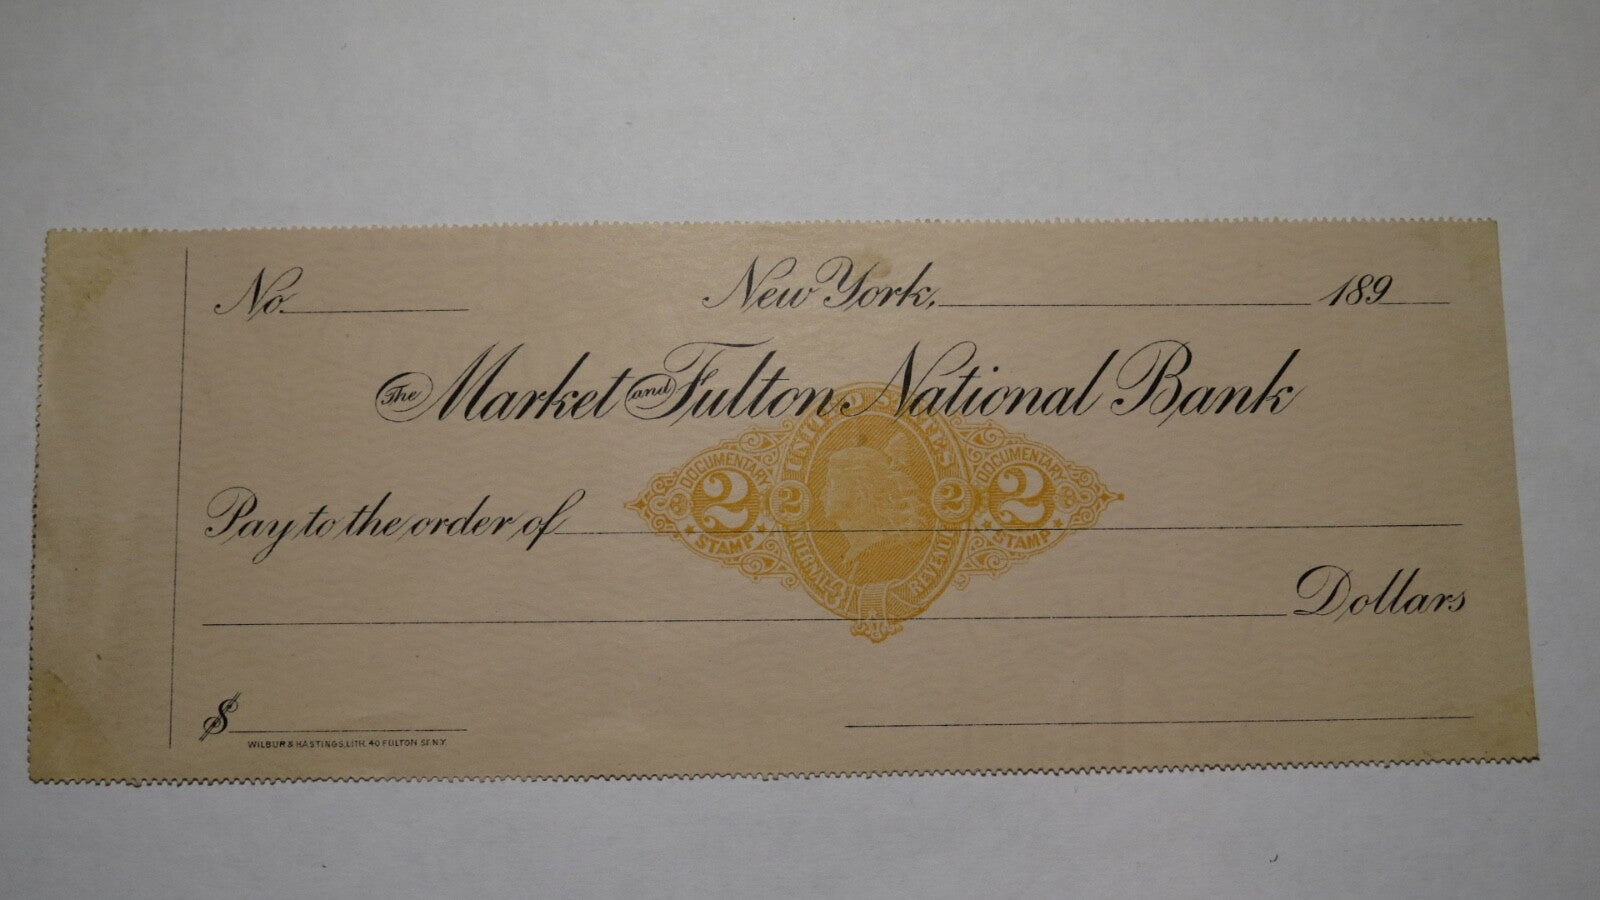 No.
New York, 189
The Market and Fulton National Bank
UNITED STATES
DOCUMENTARY 2 STAMP
2
2
DOCUMENTARY 2 STAMP
INTERNAL REVENUE
Pay to the order of
Dollars
$
WILBUR & HASTINGS, LITH. 40 FULTON ST. N.Y.